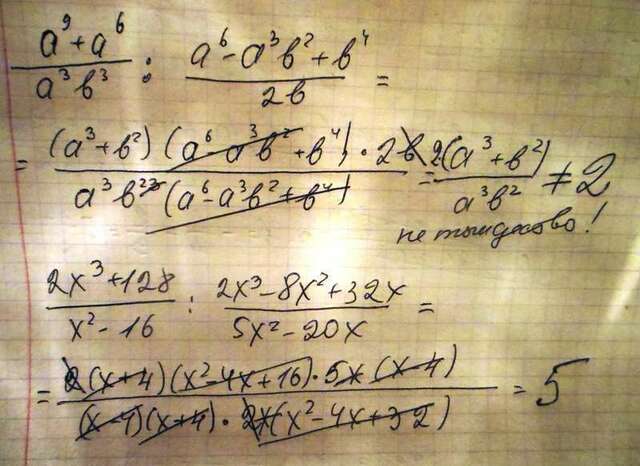 (a⁹ + a⁶)/(a³b³) : (a⁶ - a³b² + b⁴)/(2b) =
= ((a³ + b²)(a⁶ - a³b² + b⁴) · 2b)/(a³b³(a⁶ - a³b² + b⁴)) = 2(a³ + b²)/(a³b²) ≠ 2
не тождество!
(2x³ + 128)/(x² - 16) : (2x³ - 8x² + 32x)/(5x² - 20x) =
= (2(x + 4)(x² - 4x + 16) · 5x(x - 4))/((x - 4)(x + 4) · 2x(x² - 4x + 32)) = 5